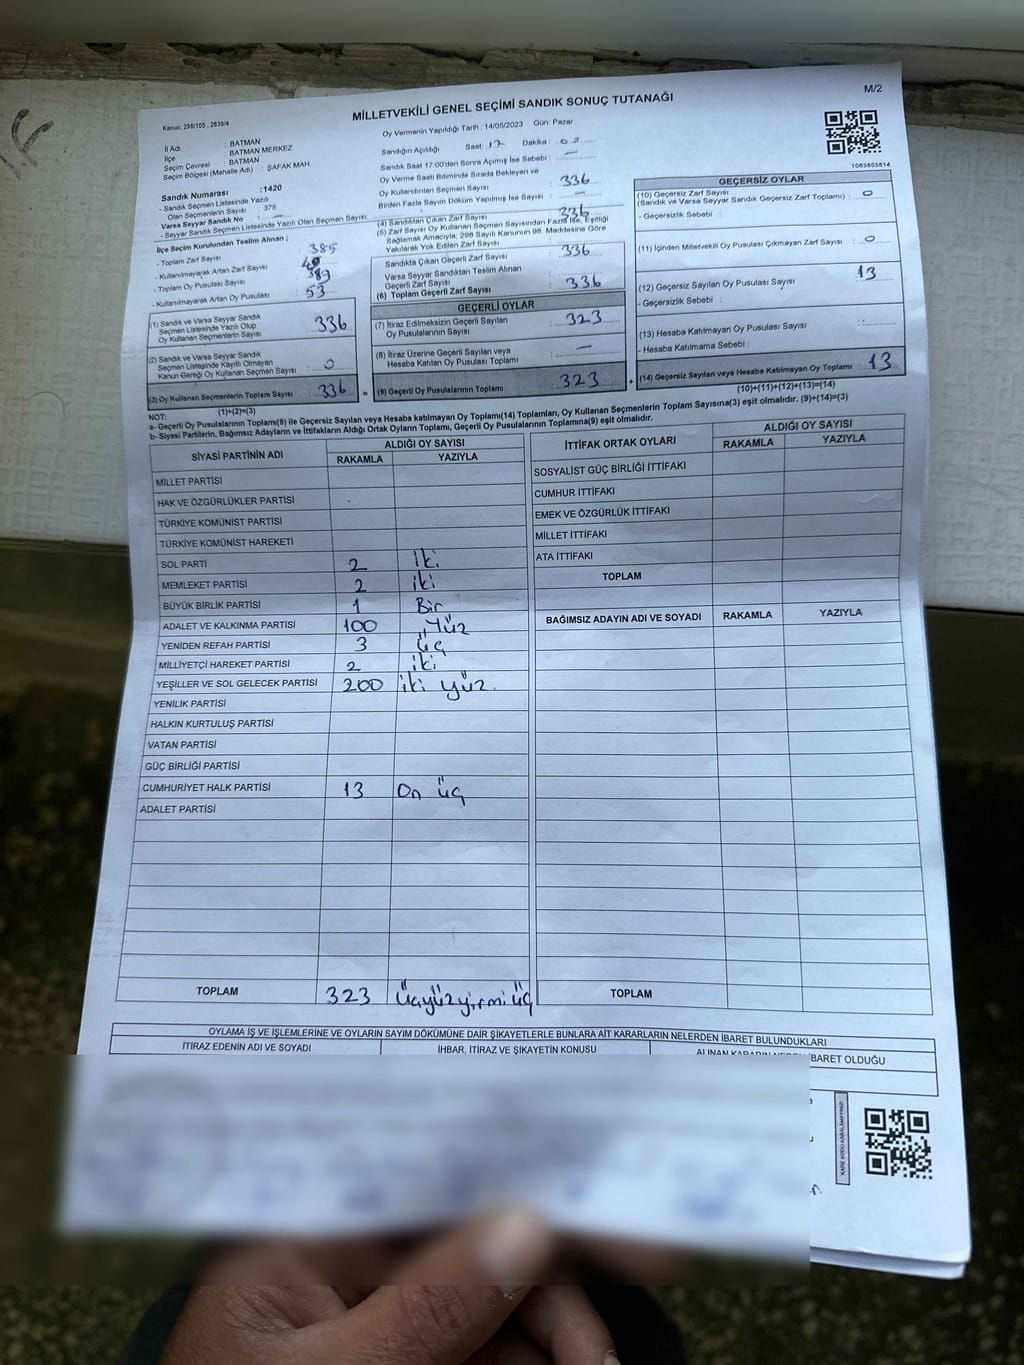 MİLLETVEKİLİ GENEL SEÇİMİ SANDIK SONUÇ TUTANAĞI
M/2
Kanun: 298/105 , 2839/4
Oy Vermenin Yapıldığı Tarih : 14/05/2023 Gün: Pazar
İl Adı : BATMAN
İlçe : BATMAN MERKEZ
Seçim Çevresi : BATMAN
Seçim Bölgesi (Mahalle Adı) : ŞAFAK MAH
Sandık Numarası :1420
- Sandık Seçmen Listesinde Yazılı
Olan Seçmenlerin Sayısı : 375
Varsa Seyyar Sandık No :
- Seyyar Sandık Seçmen Listesinde Yazılı Olan Seçmen Sayısı:
İlçe Seçim Kurulundan Teslim Alınan ;
- Toplam Zarf Sayısı : 385
- Kullanılmayarak Artan Zarf Sayısı
- Toplam Oy Pusulası Sayısı : 387
- Kullanılmayarak Artan Oy Pusulası : 53
(1) Sandık ve Varsa Seyyar Sandık
Seçmen Listesinde Yazılı Olup
Oy Kullanan Seçmenlerin Sayısı 336
(2) Sandık ve Varsa Seyyar Sandık
Seçmen Listesinde Kayıtlı Olmayan
Kanun Gereği Oy Kullanan Seçmen Sayısı : 0
(3) Oy Kullanan Seçmenlerin Toplam Sayısı : 336
(1)+(2)=(3)
Sandığın Açıldığı Saat : 17 Dakika : 00
Sandık Saat 17:00'den Sonra Açılmış İse Sebebi : —
Oy Verme Saati Bitiminde Sırada Bekleyen ve
Oy Kullandırılan Seçmen Sayısı : 336
Birden Fazla Sayım Döküm Yapılmış İse Sayısı : —
(4) Sandıktan Çıkan Zarf Sayısı : 336
(5) Zarf Sayısı Oy Kullanan Seçmen Sayısından Fazla İse, Eşitliği
Sağlamak Amacıyla; 298 Sayılı Kanunun 98. Maddesine Göre
Yakılarak Yok Edilen Zarf Sayısı :
Sandıkta Çıkan Geçerli Zarf Sayısı : 336
Varsa Seyyar Sandıktan Teslim Alınan
Geçerli Zarf Sayısı :
(6) Toplam Geçerli Zarf Sayısı : 336
GEÇERLİ OYLAR
(7) İtiraz Edilmeksizin Geçerli Sayılan
Oy Pusulalarının Sayısı : 323
(8) İtiraz Üzerine Geçerli Sayılan veya
Hesaba Katılan Oy Pusulası Toplamı : —
= (9) Geçerli Oy Pusulalarının Toplamı : 323 +
1083853814
GEÇERSİZ OYLAR
(10) Geçersiz Zarf Sayısı
(Sandık ve Varsa Seyyar Sandık Geçersiz Zarf Toplamı) : 0
- Geçersizlik Sebebi :
(11) İçinden Milletvekili Oy Pusulası Çıkmayan Zarf Sayısı : 0
(12) Geçersiz Sayılan Oy Pusulası Sayısı : 13
- Geçersizlik Sebebi :
(13) Hesaba Katılmayan Oy Pusulası Sayısı :
- Hesaba Katılmama Sebebi :
(14) Geçersiz Sayılan veya Hesaba Katılmayan Oy Toplamı : 13
(10)+(11)+(12)+(13)=(14)
NOT:
a- Geçerli Oy Pusulalarının Toplamı(9) ile Geçersiz Sayılan veya Hesaba katılmayan Oy Toplamı(14) Toplamları, Oy Kullanan Seçmenlerin Toplam Sayısına(3) eşit olmalıdır. (9)+(14)=(3)
b- Siyasi Partilerin, Bağımsız Adayların ve İttifakların Aldığı Ortak Oyların Toplamı, Geçerli Oy Pusulalarının Toplamına(9) eşit olmalıdır.
SİYASİ PARTİNİN ADI ALDIĞI OY SAYISI
RAKAMLA YAZIYLA
MİLLET PARTİSİ
HAK VE ÖZGÜRLÜKLER PARTİSİ
TÜRKİYE KOMÜNİST PARTİSİ
TÜRKİYE KOMÜNİST HAREKETİ
SOL PARTİ 2 iki
MEMLEKET PARTİSİ 2 iki
BÜYÜK BİRLİK PARTİSİ 1 Bir
ADALET VE KALKINMA PARTİSİ 100 Yüz
YENİDEN REFAH PARTİSİ 3 üç
MİLLİYETÇİ HAREKET PARTİSİ 2 iki
YEŞİLLER VE SOL GELECEK PARTİSİ 200 iki yüz
YENİLİK PARTİSİ
HALKIN KURTULUŞ PARTİSİ
VATAN PARTİSİ
GÜÇ BİRLİĞİ PARTİSİ
CUMHURİYET HALK PARTİSİ 13 On üç
ADALET PARTİSİ
TOPLAM 323 üçyüzyirmi üç
İTTİFAK ORTAK OYLARI ALDIĞI OY SAYISI
RAKAMLA YAZIYLA
SOSYALİST GÜÇ BİRLİĞİ İTTİFAKI
CUMHUR İTTİFAKI
EMEK VE ÖZGÜRLÜK İTTİFAKI
MİLLET İTTİFAKI
ATA İTTİFAKI
TOPLAM
BAĞIMSIZ ADAYIN ADI VE SOYADI RAKAMLA YAZIYLA
TOPLAM
OYLAMA İŞ VE İŞLEMLERİNE VE OYLARIN SAYIM DÖKÜMÜNE DAİR ŞİKAYETLERLE BUNLARA AİT KARARLARIN NELERDEN İBARET BULUNDUKLARI
İTİRAZ EDENİN ADI VE SOYADI İHBAR, İTİRAZ VE ŞİKAYETİN KONUSU ALINAN KARARIN NEDEN İBARET OLDUĞU
KARE KODU KARALAMAYINIZ!